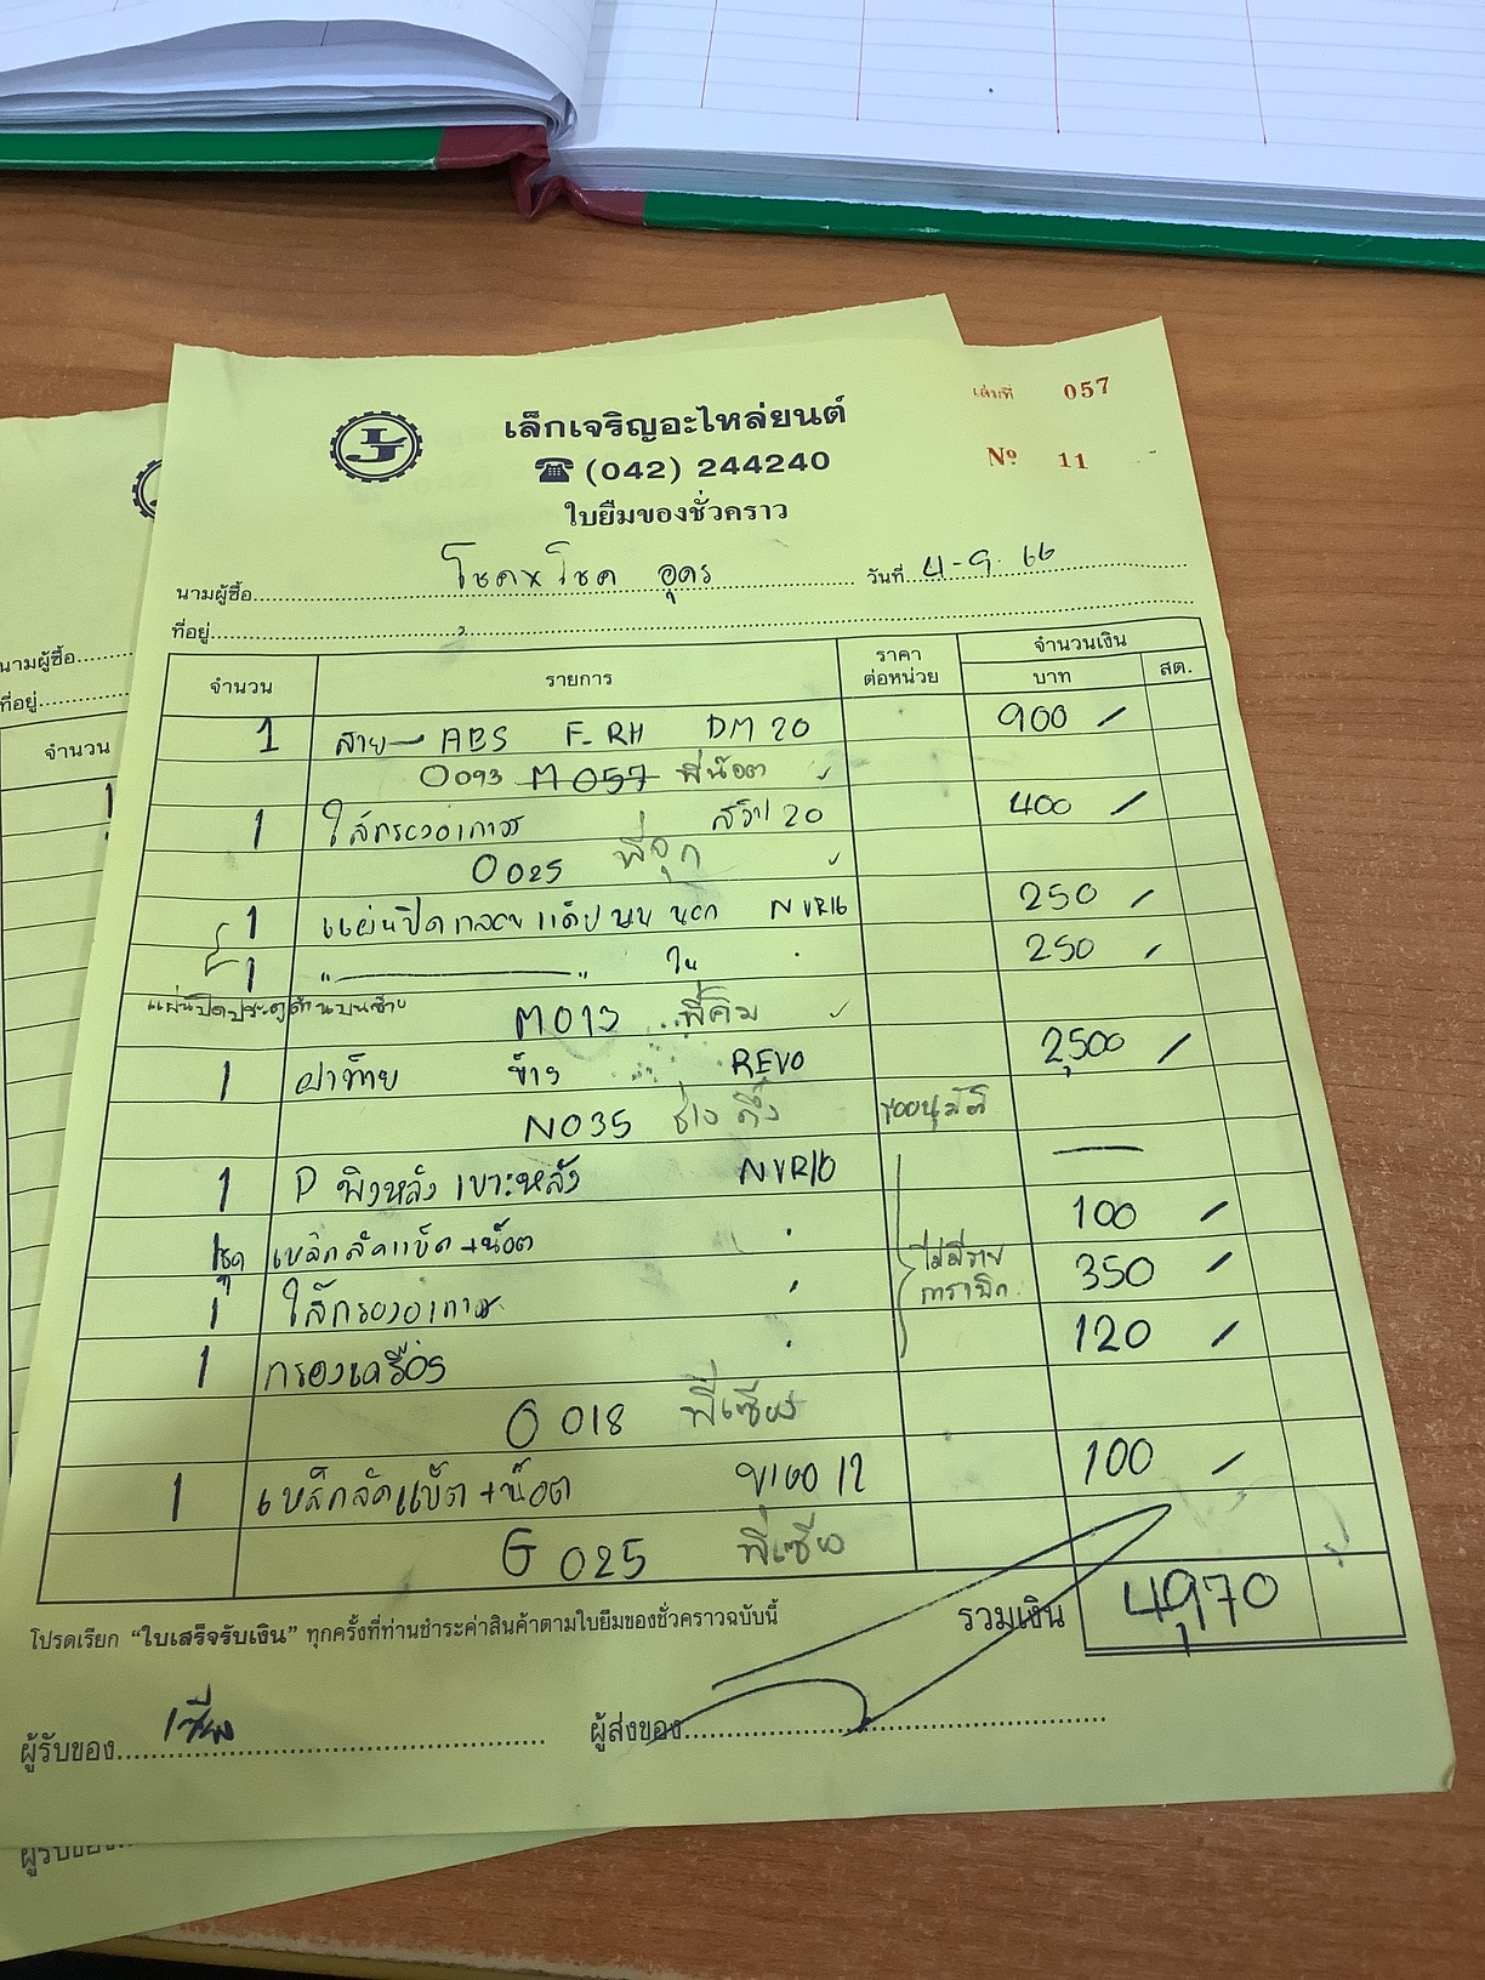 เล็กเจริญอะไหล่ยนต์
เล่มที่ 057
☎ (042) 244240
Nº 11
ใบยืมของชั่วคราว
นามผู้ซื้อ โชคxโชค อุดร วันที่ 4-9-66
ที่อยู่
จำนวน รายการ ราคาต่อหน่วย จำนวนเงิน บาท สต.
1 สาย ABS F-RH DM 20 900 -
O093 M057 พี่น๊อต
1 ไส้กรองอากาศ สวิป 20 400 -
O025 พี่จุก
1 แผ่นปิดกลอนแค๊ปบน นอก NVR16 250 -
1 "———" ใน 250 -
แผ่นปิดประตูด้านบนซ้าย
M013 พี่คิม
1 ฝาท้าย ข้าง REVO 2,500 -
N035 ช่าง ขออนุมัติ
1 P พิงหลัง เบาะหลัง NVR16 —
1ชุด เหล็กลัดแบ็ต+น๊อต 100 -
1 ไส้กรองอากาศ ไม่มีราย 350 -
การเบิก
1 กรองเครื่อง 120 -
O018 พี่เซียง
1 เหล็กลัดแบ็ต+น๊อต 12 100 -
G025 พี่เซียง
รวมเงิน 4,970
โปรดเรียก “ใบเสร็จรับเงิน” ทุกครั้งที่ท่านชำระค่าสินค้าตามใบยืมของชั่วคราวฉบับนี้
ผู้รับของ เซียง ผู้ส่งของ
นามผู้ซื้อ
ที่อยู่
จำนวน
ผู้รับของ